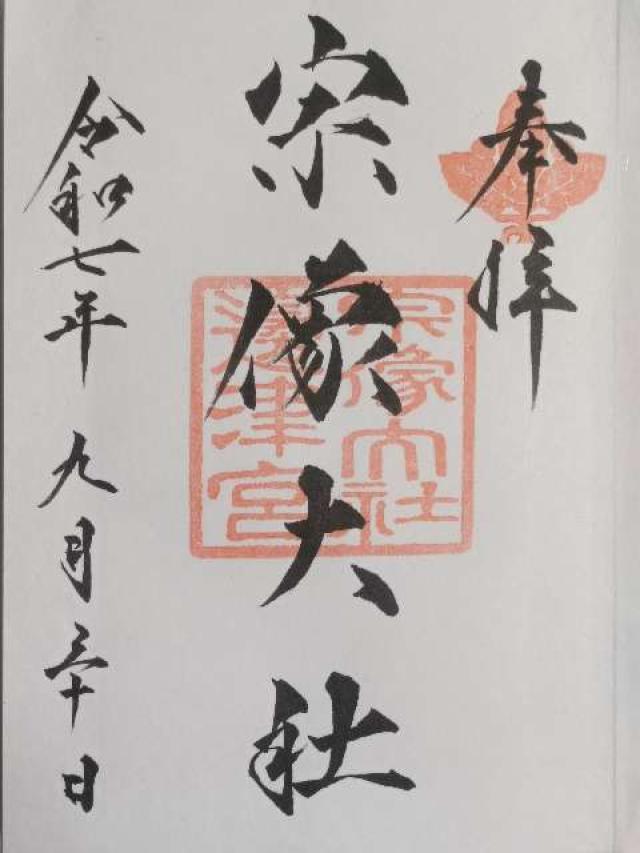 奉拝
宗像大社
宗像大社
邊津宮
令和七年九月三十日